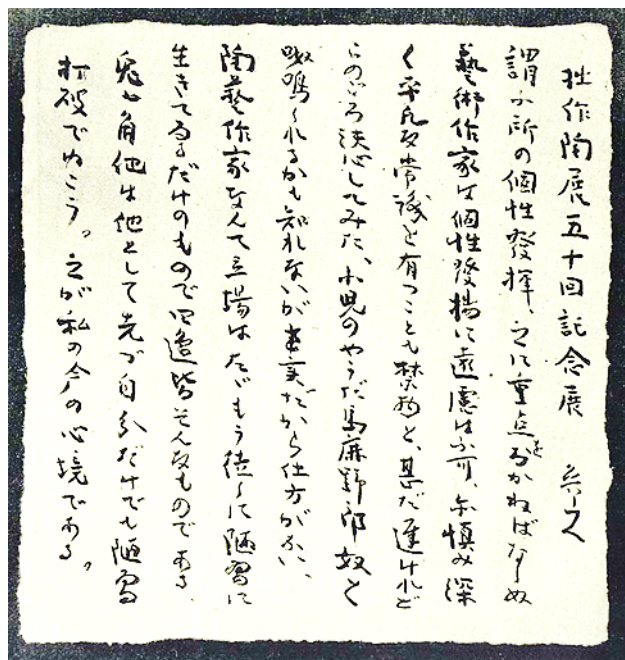 拙作陶展五十回記念展
謂ふ所の個性發揮、之に重点をおかねばならぬ
藝術作家は個性發揚に遠慮は不可、亦慎み深
く平凡な常識を有つことも禁物と、甚だ遅けれど
このごろ決心してみた、小児のやうだ馬鹿野郎奴と
呶鳴られるかも知れないが事実だから仕方がない、
陶藝作家なんて立場はたゞもう徒らに陋習に
生きてゐるだけのもので四邊皆そんなものである、
兎も角他は他として先づ自分だけでも陋習
打破でゆこう。之が私の今の心境である。